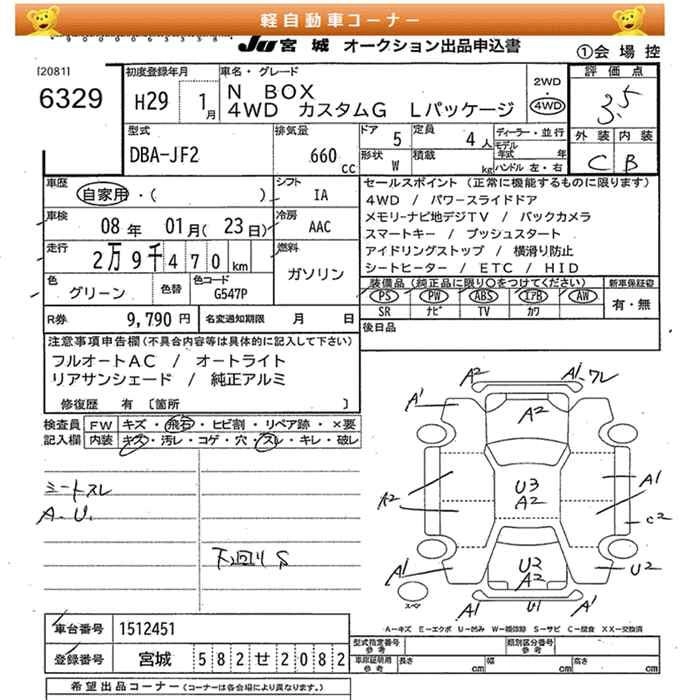 軽自動車コーナー
JU 宮城 オークション出品申込書
①会場控
[2081]
6329
初度登録年月
H29 1月
車名・グレード
N BOX
4WD カスタムG Lパッケージ
2WD
・
4WD
評価点
3.5
外装 内装
C B
型式
DBA-JF2
排気量
660
cc
ドア 5
定員 4人
形状 W
積載 kg
ディーラー・並行
モデル年式 年
ハンドル 左・右
車歴
自家用・( )
シフト
IA
車検
08年 01月(23日)
冷房
AAC
走行
2万9千470km
燃料
ガソリン
色
グリーン
色替
色コード
G547P
R券 9,790円
名変通知期限 月 日
セールスポイント(正常に機能するものに限ります)
4WD / パワースライドドア
メモリーナビ地デジTV / バックカメラ
スマートキー / プッシュスタート
アイドリングストップ / 横滑り防止
シートヒーター / ETC / HID
装備品(純正品に限り○をつけてください)
新車保証書
PS PW ABS エアB AW
SR ナビ TV カワ
有・無
後日品
注意事項申告欄(不具合内容等は具体的に記入して下さい)
フルオートAC / オートライト
リアサンシェード / 純正アルミ
修復歴 有 〔箇所 〕
検査員
記入欄
FW キズ・飛石・ヒビ割・リペア跡・×要
内装 キズ・汚レ・コゲ・穴・スレ・キレ・破レ
シートスレ
A.U.
下回りS
A2
A1.ワレ
A1
A1
A2
U3
A2
A2
A1
C2
U2
A2
U2
A1
A1
U1
A1
スペア
A−キズ E−エクボ U−凹み W−補修跡 S−サビ C−腐食 XX−交換済
車台番号 1512451
登録番号 宮城 582せ2082
型式指定番号
参考
類別区分番号
参考
車庫証明用
参考
長さ cm
幅 cm
高さ cm
希望出品コーナー(コーナーは各会場により異なります。)